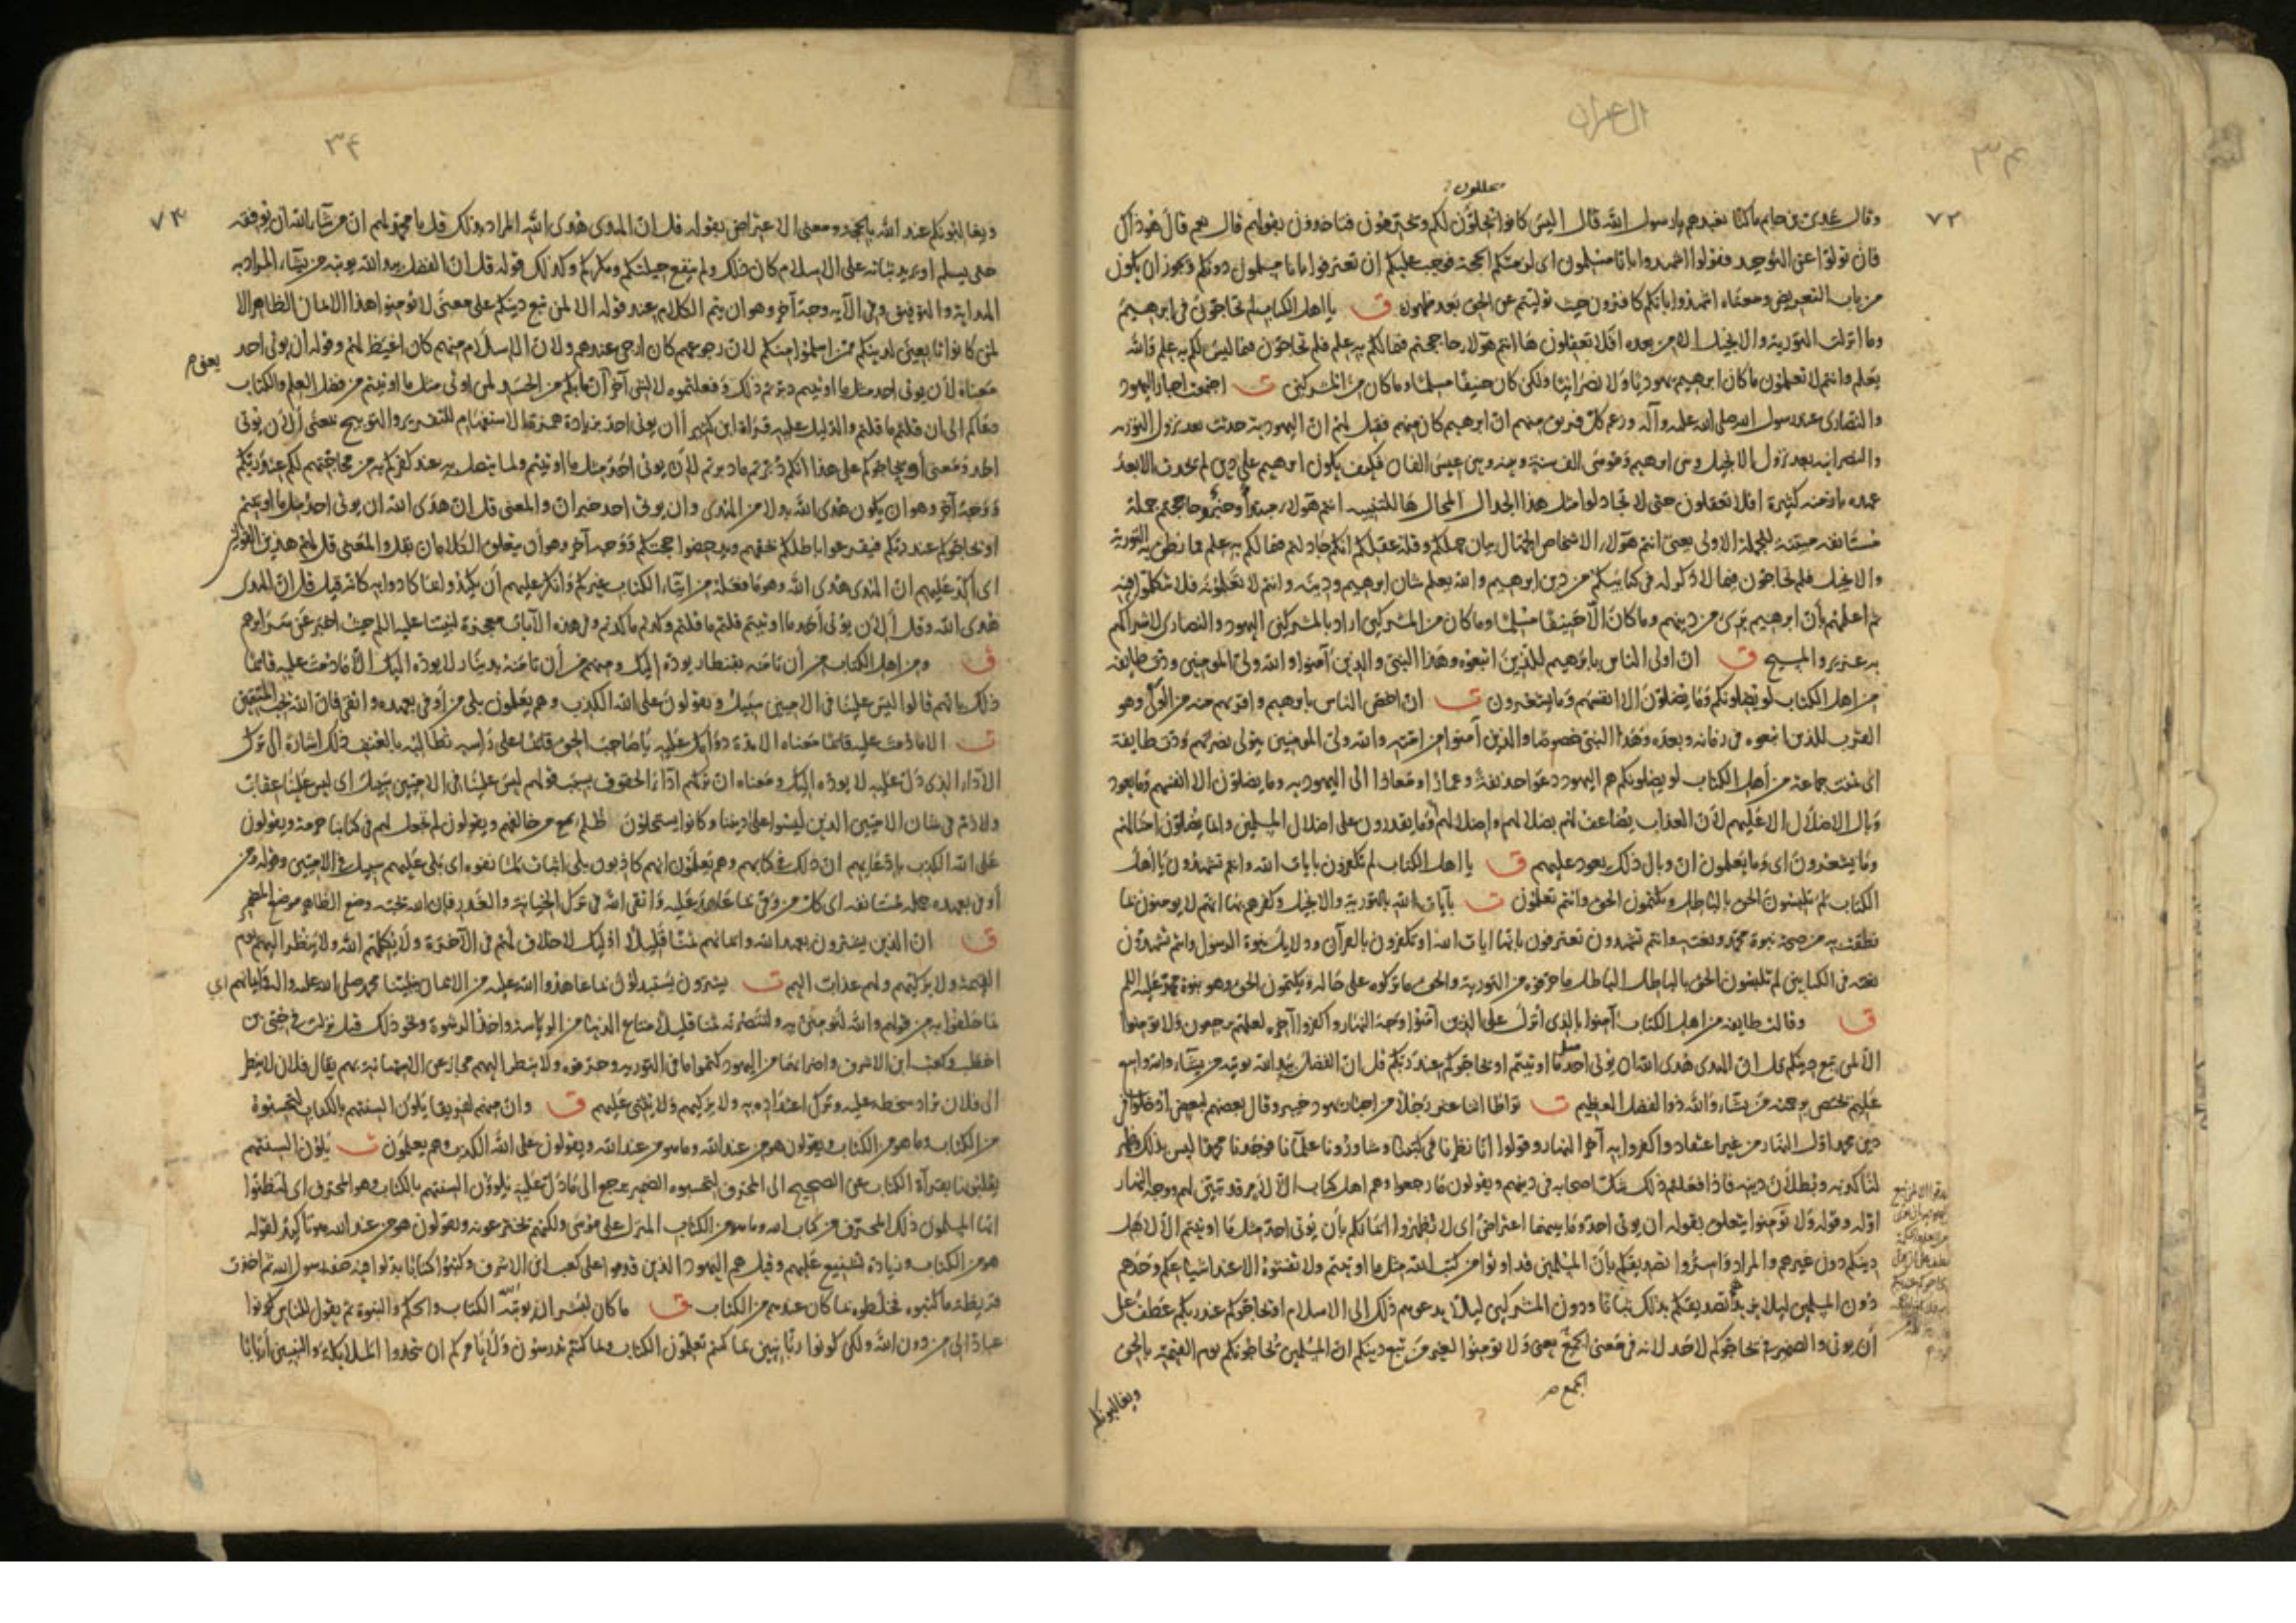 ال عمران
٣٤
٧٢
يحللون
وقال عدي بن حاتم ما كنا نعبدهم يا رسول الله قال اليس كانوا يحلّون لكم ويحرّمون فتاخذون بقولهم قال نعم قال هو ذاك
فان تولّوا عن التوحيد فقولوا اشهدوا بانّا مسلمون اى لزمتكم الحجّة فوجب عليكم ان تعترفوا بانا مسلمون دونكم ويجوز ان يكون
من باب التعريض ومعناه اشهدوا بانكم كافرون حيث توليتم عن الحق بعد ظهوره ق يا اهل الكتاب لم تحاجّون فى ابرهيم
وما انزلت التورية والانجيل الا من بعده افلا تعقلون ها انتم هؤلاء حاججتم فيما لكم به علم فلم تحاجّون فيما ليس لكم به علم والله
يعلم وانتم لا تعلمون ما كان ابرهيم يهوديّا ولا نصرانيّا ولكن كان حنيفًا مسلمًا وما كان من المشركين ت اجتمعت احبار اليهود
والنصارى عند رسول الله صلى الله عليه وآله وزعم كل فريق منهم ان ابرهيم كان منهم فقيل لهم ان اليهودية حدثت بعد نزول التورية
والنصرانية بعد نزول الانجيل وبين ابرهيم وموسى الف سنة وبينه وبين عيسى الفان فكيف يكون ابرهيم على دين لم يحدث الا بعد
عهده بازمنة كثيرة افلا تعقلون حتى لا تجادلوا مثل هذا الجدال المحال ها للتنبيه انتم هؤلاء مبتدأ وخبر وحاججتم جملة
مستأنفة مبيّنة للجملة الاولى يعنى انتم هؤلاء الاشخاص الجهّال بيان جهلكم وقلة عقلكم انكم جادلتم فيما لكم به علم مما نطق به التورية
والانجيل فلم تحاجّون فيما لا ذكر له فى كتابيكم من دين ابرهيم والله يعلم شان ابرهيم ودينه وانتم لا تعلمونه فلا تتكلموا فيه
ثم اعلمهم بأن ابرهيم برىء من دينهم وما كان الّا حنيفًا مسلمًا وما كان من المشركين اراد بالمشركين اليهود والنصارى لاشراكهم
به عزير والمسيح ق ان اولى الناس بابرهيم للذين اتبعوه وهذا النبىّ والذين آمنوا والله ولىّ المومنين ودّت طايفة
من اهل الكتاب لو يضلونكم وما يضلّون الا انفسهم وما يشعرون ت ان اخصّ الناس بابرهيم واقربهم منه من الولى وهو
القرب للذين اتبعوه فى زمانه وبعده وهذا النبىّ خصوصًا والذين آمنوا من امّته والله ولىّ المومنين يتولى نصرتهم ودّت طايفة
اى تمنّت جماعة من أهل الكتاب لو يضلونكم هم اليهود دعوا حذيفة وعمارًا ومعاذًا الى اليهودية وما يضلّون الا انفسهم وما يعود
وبال الاضلال الا عليهم لأن العذاب يضاعف لهم بضلالهم واضلالهم او ما يقدرون على اضلال المسلمين وانما يضلّون امثالهم
وما يشعرون اى وما يعلمون انّ وبال ذلك يعود عليهم ق يا اهل الكتاب لم تكفرون بايات الله وانتم تشهدون يا اهل
الكتاب لم تلبسون الحق بالباطل وتكتمون الحق وانتم تعلمون ت بآيات الله بالتورية والانجيل وكفرهم بها انهم لا يومنون بما
نطقت به من صحة نبوة محمد ونعته وانتم تشهدون تعترفون بانها ايات الله او تكفرون بالقرآن ودلايل نبوة الرسول وانتم تشهدون
نعته فى الكتابين لم تلبسون الحق بالباطل الباطل ما حرّفوه من التورية والحق ما تركوه على حاله وتكتمون الحق وهو نبوة محمد عليه السلم
ق وقالت طايفة من اهل الكتاب آمنوا بالذى أنزل على الذين آمنوا وجه النهار واكفروا آخره لعلهم يرجعون ولا تؤمنوا
الّا لمن تبع دينكم قل انّ الهدى هدى الله ان يؤتى احد مثل ما اوتيتم او يحاجّوكم عند ربّكم قل انّ الفضل بيد الله يؤتيه من يشاء والله واسع
عليم يختص برحمته من يشاء والله ذو الفضل العظيم ت تواطأ اثنا عشر رجلًا من احبار يهود خيبر وقال بعضهم لبعض ادخلوا فى
دين محمد اوّل النهار من غير اعتقاد واكفروا به آخر النهار وقولوا انّا نظرنا فى كتبنا وشاورنا علمآنا فوجدنا محمدًا ليس بذلك وظهر
لنا كذبه وبطلان دينه فاذا فعلتم ذلك شكّ اصحابه فى دينهم ويقولون ما رجعوا وهم اهل كتاب الّا لامر قد تبيّن لهم ووجه النهار
اوّله وقوله ولا تؤمنوا يتعلق بقوله ان يؤتى احد وما بينهما اعتراض اى لا تظهروا ايمانكم بأن يؤتى احد مثل ما اوتيتم الّا لاهل
دينكم دون غيرهم والمراد واسرّوا تصديقكم بأنّ المسلمين قد اوتوا من كتب الله مثل ما اوتيتم ولا تفشوه الا عند اشياعكم وحدهم
دون المسلمين ليلا يزيدهم تصديقكم بذلك ثباتًا ودون المشركين ليلا يدعوهم ذلك الى الاسلام او يحاجّوكم عند ربكم عطف على
أن يؤتى والضمير فى يحاجّوكم لاحد لانه فى معنى الجمع يعنى ولا تؤمنوا لغير من تبع دينكم انّ المسلمين يحاجّونكم يوم القيمة بالحق
الجمع
ويغالبونكم
٣٤
٧٣
ويغالبونكم عند الله بالحجّة ومعنى الاعتراض بقوله قل انّ الهدى هدى الله المراد بذلك قل يا محمد لهم انّ من شآء الله ان يوفقه
حتى يسلم او يريد ثباته على الاسلام كان ذلك ولم ينفع حيلتكم ومكركم وكذلك قوله قل انّ الفضل بيد الله يوتيه من يشاء المراد به
الهداية والتوفيق وفى الآية وجه آخر وهو ان يتم الكلام عند قوله الا لمن تبع دينكم على معنى لا تؤمنوا هذا الايمان الظاهر الا
لمن كانوا تابعين لدينكم ممن اسلموا منكم لانّ رجوعهم كان ارجى عندهم ولانّ الاسلام منهم كان اغيظ لهم وقوله أن يؤتى احد
يعنى
معناه لأن يؤتى احد مثل ما اوتيتم دبّرتم ذلك وفعلتموه لا لشىء آخر انّ ما بكم من الحسد لمن اوتى مثل ما اوتيتم من فضل العلم والكتاب
دعاكم الى ان قلتم ما قلتم والدليل عليه قرآة ابن كثير أأن يؤتى احد بزيادة همزة الاستفهام للتقرير والتوبيخ بمعنى ألأن يؤتى
احد ومعنى أو يحاجّوكم على هذا انكم دبّرتم ما دبّرتم لأن يؤتى احد مثل ما اوتيتم ولما يتصل به عند كفركم به من محاجّتهم لكم عند ربّكم
ووجه آخر وهو ان يكون هدى الله بدلا من الهدى وان يؤتى احد خبر انّ والمعنى قل انّ هدى الله ان يؤتى احد مثل ما اوتيتم
او يحاجّوكم عند ربّكم فيقرعوا باطلكم بحقهم ويدحضوا حجتكم ووجه آخر وهو أن يتعلق الكلامان بقل والمعنى قل لهم هذين القولين
اى أكّد عليهم انّ الهدى هدى الله وهو ما فعله من ايتاء الكتاب غيركم وانكر عليهم أن
هدى الله وقل ألأن يؤتى أحد مثل ما اوتيتم قلتم ما قلتم وكدتم ما كدتم وفى هذه الآيات معجزة لنبينا عليه السلم حيث اخبر عن سرايرهم
ق ومن اهل الكتاب من أن تأمنه بقنطار يودّه اليك ومنهم من أن تأمنه بدينار لا يودّه اليك الّا ما دمت عليه قائمًا
ذلك بانّهم قالوا ليس علينا فى الاميين سبيل ويقولون على الله الكذب وهم يعلمون بلى من أوفى بعهده واتقى فانّ الله يحبّ المتقين
ت الا ما دمت عليه قائمًا معناه الا مدة دوامك عليه يا صاحب الحق قائمًا على رأسه تطالبه بالعنف ذلك اشارة الى ترك
الآدآء الذى دلّ عليه لا يودّه اليك ومعناه انّ تركهم ادآء الحقوق بسبب قولهم ليس علينا فى الاميين سبيل اى ليس علينا عقاب
ولا ذمّ فى شان الاميين الذين ليسوا على ديننا وكانوا يستحلّون ظلم من خالفهم ويقولون لم نجعل لهم فى كتابنا حرمة ويقولون
على الله الكذب بادّعايهم انّ ذلك فى كتابهم وهم يعلمون انهم كاذبون بلى اثبات لما نفوه اى بلى عليهم سبيل فى الاميين وقوله من
أوفى بعهده جملة مستأنفة اى كل من وفى بما عاهد عليه واتقى الله فى ترك الخيانة والغدر فان الله يحبّه وضع الظاهر موضع المضمر
ق ان الذين يشترون بعهد الله وايمانهم ثمنًا قليلًا اوليك لا خلاق لهم فى الآخرة ولا يكلّمهم الله ولا ينظر اليهم يوم
القيمة ولا يزكيهم ولهم عذاب اليم ت يشترون يستبدلون بما عاهدوا الله عليه من الايمان بنبيّنا محمد صلى الله عليه واله وايمانهم اى
بما حلفوا به من قولهم والله لنؤمننّ به ولننصرنّه ثمنًا قليلًا متاع الدنيا من الرياسة واخذ الرشوة ونحو ذلك قيل نزلت فى حيىّ بن
اخطب وكعب ابن الاشرف واضرابهما من اليهود كتموا ما فى التورية وحرّفوه ولا ينظر اليهم مجاز عن الاستهانة بهم يقال فلان لا ينظر
الى فلان يراد سخطه عليه وترك اعتداده به ولا يزكيهم ولا يثنى عليهم ق وان منهم لفريقا يلوون السنتهم بالكتاب لتحسبوه
من الكتاب وما هو من الكتاب ويقولون هو من عند الله وما هو من عند الله ويقولون على الله الكذب وهم يعلمون ت يلوون السنتهم
يفتلونها بقرآة الكتاب عن الصحيح الى المحرّف لتحسبوه الضمير يرجع الى ما دلّ عليه يلوون السنتهم بالكتاب وهو المحرّف اى لتظنّوا
ايّها المسلمون ذلك المحرّف من كتاب الله وما هو من الكتاب المنزل على موسى ولكنهم يخترعونه ويقولون هو من عند الله هو تأكيد لقوله
هو من الكتاب وزيادة تشنيع عليهم وقيل هم اليهود الذين قدموا على كعب ابن الاشرف وكتبوا كتابًا بدّلوا فيه صفة رسول الله ثم اخذت
قريظة ما كتبوه فخلطوه بما كان عندهم من الكتاب ق ما كان لبشر ان يؤتيه الله الكتاب والحكم والنبوة ثم يقول للناس كونوا
عبادًا لى من دون الله ولكن كونوا ربّانيّين بما كنتم تعلّمون الكتاب وبما كنتم تدرسون ولا يأمركم ان تتخذوا الملايكة والنبيين أربابًا